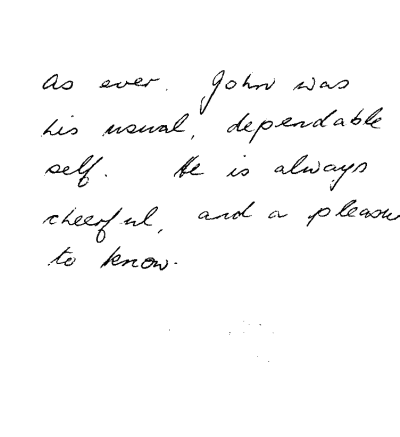 As ever. John was
his usual, dependable
self. He is always
cheerful, and a pleasu
to know.